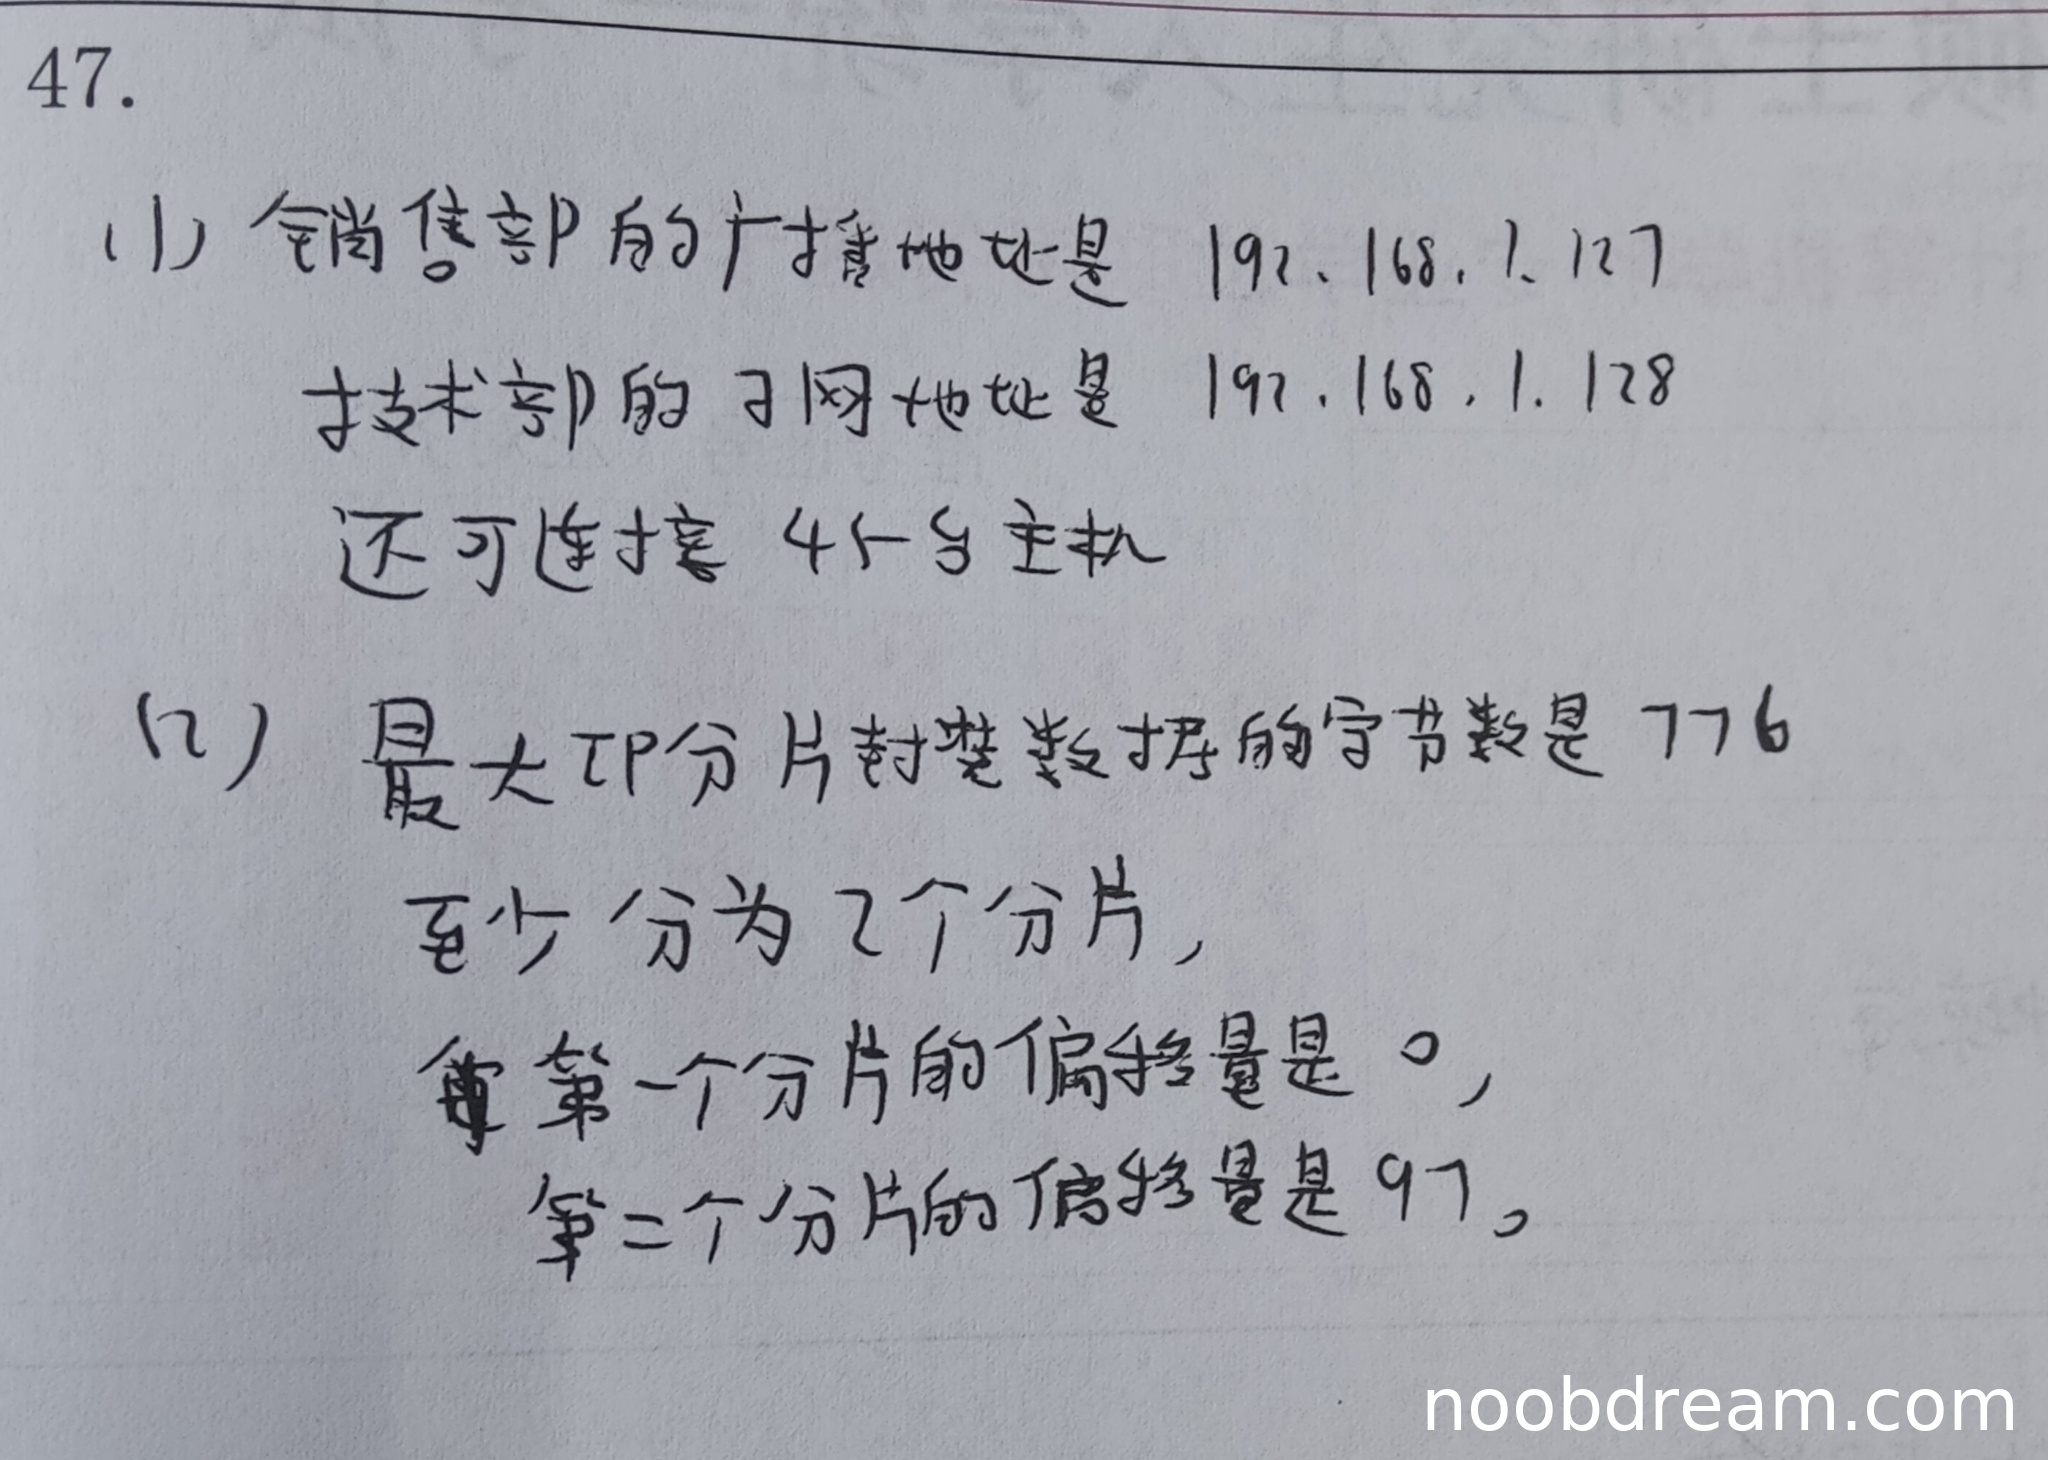 47.
(1) 销售部的广播地址是 192.168.1.127
技术部的子网地址是 192.168.1.128
还可连接 45台主机
(2) 最大IP分片封装数据的字节数是 776
至少分为2个分片,
第一个分片的偏移量是 0,
第二个分片的偏移量是 97。
noobdream.com